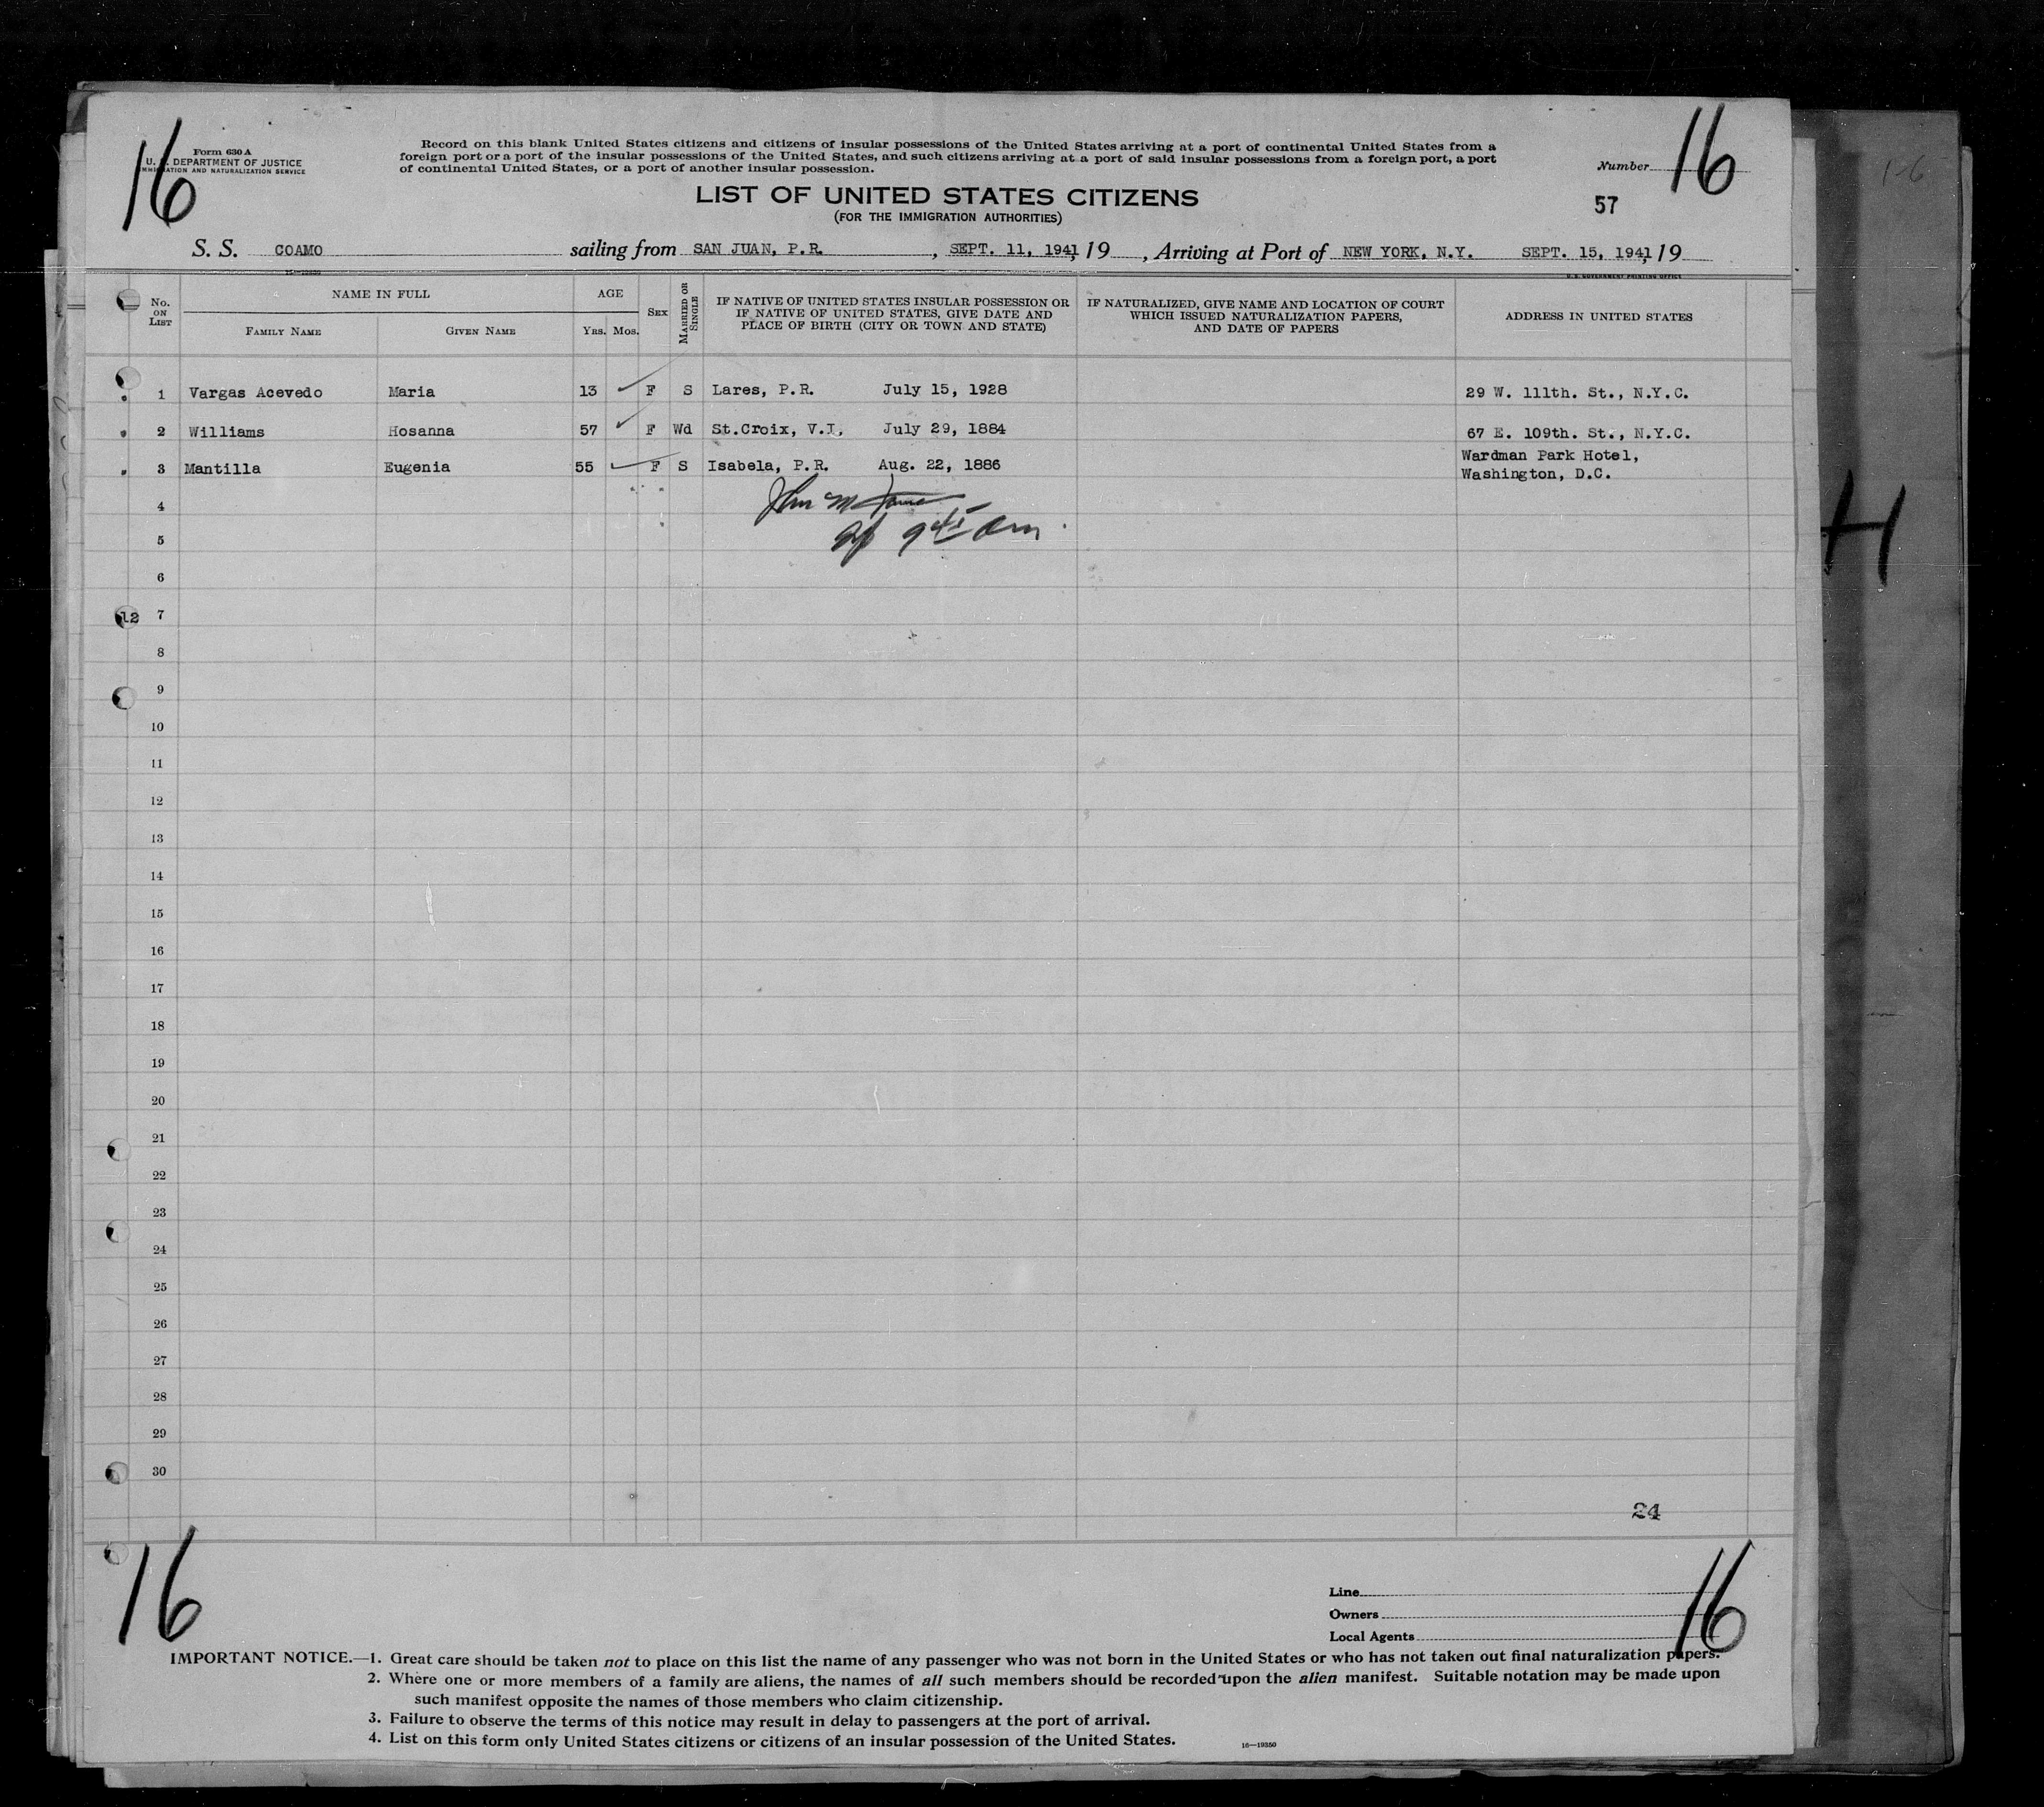 16
Form 630 A
U. S. DEPARTMENT OF JUSTICE
IMMIGRATION AND NATURALIZATION SERVICE
Record on this blank United States citizens and citizens of insular possessions of the United States arriving at a port of continental United States from a
foreign port or a port of the insular possessions of the United States, and such citizens arriving at a port of said insular possessions from a foreign port, a port
of continental United States, or a port of another insular possession.
Number 16
LIST OF UNITED STATES CITIZENS
(FOR THE IMMIGRATION AUTHORITIES)
57
S. S. COAMO sailing from SAN JUAN, P.R. , SEPT. 11, 1941, 19 , Arriving at Port of NEW YORK, N.Y. SEPT. 15, 1941, 19
U. S. GOVERNMENT PRINTING OFFICE
No. ON LIST
NAME IN FULL
FAMILY NAME GIVEN NAME
AGE
YRS. MOS.
SEX
MARRIED OR SINGLE
IF NATIVE OF UNITED STATES INSULAR POSSESSION OR
IF NATIVE OF UNITED STATES, GIVE DATE AND
PLACE OF BIRTH (CITY OR TOWN AND STATE)
IF NATURALIZED, GIVE NAME AND LOCATION OF COURT
WHICH ISSUED NATURALIZATION PAPERS,
AND DATE OF PAPERS
ADDRESS IN UNITED STATES
1 Vargas Acevedo Maria 13 F S Lares, P.R. July 15, 1928 29 W. 111th. St., N.Y.C.
2 Williams Hosanna 57 F Wd St.Croix, V.I. July 29, 1884 67 E. 109th. St., N.Y.C.
3 Mantilla Eugenia 55 F S Isabela, P.R. Aug. 22, 1886 Wardman Park Hotel,
Washington, D.C.
4
5
6
12 7
8
9
10
11
12
13
14
15
16
17
18
19
20
21
22
23
24
25
26
27
28
29
30
24
16
16
Line
Owners
Local Agents
IMPORTANT NOTICE.—1. Great care should be taken not to place on this list the name of any passenger who was not born in the United States or who has not taken out final naturalization papers.
2. Where one or more members of a family are aliens, the names of all such members should be recorded upon the alien manifest. Suitable notation may be made upon
such manifest opposite the names of those members who claim citizenship.
3. Failure to observe the terms of this notice may result in delay to passengers at the port of arrival.
4. List on this form only United States citizens or citizens of an insular possession of the United States.
16—19350
H